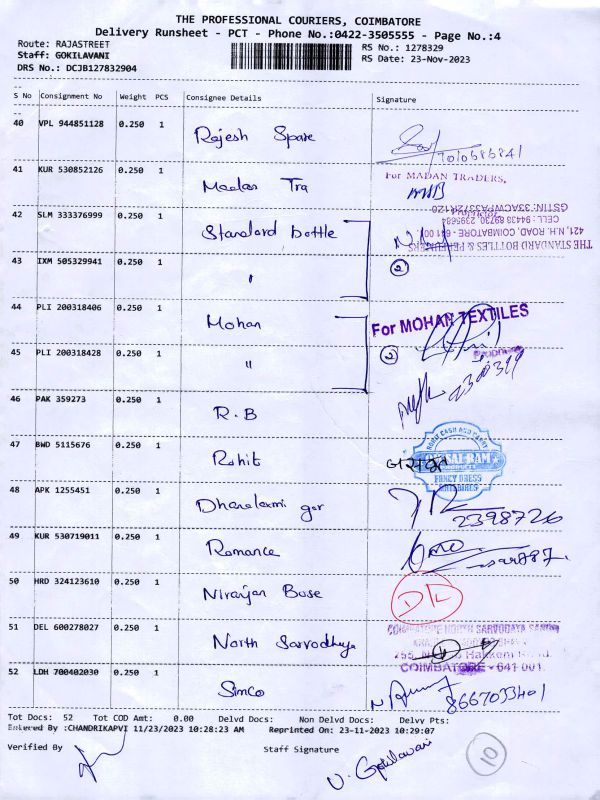 THE PROFESSIONAL COURIERS, COIMBATORE
Delivery Runsheet - PCT - Phone No.:0422-3505555 - Page No.:4
Route: RAJASTREET
RS No.: 1278329
Staff: GOKILAVANI
RS Date: 23-Nov-2023
DRS No.: DCJB127832904
S No Consignment No Weight PCS Consignee Details Signature
40 VPL 944851128 0.250 1 Rajesh Spare
7010686841
41 KUR 530852126 0.250 1 Madan Tra
For MADAN TRADERS,
42 SLM 333376999 0.250 1 Standard bottle
THE STANDARD BOTTLES & PERFUMERS
421, N.H. ROAD, COIMBATORE - 641 001.
CELL : 94438 89730, 2395684
GSTIN: 33ACWPA3372R1Z0
43 IXM 505329941 0.250 1 "
2
44 PLI 200318406 0.250 1 Mohan
For MOHAN TEXTILES
45 PLI 200318428 0.250 1 "
2
46 PAK 359273 0.250 1 R.B
47 BWD 5115676 0.250 1 Rohit
ROHIT CASH AND CARRY
FANCY DRESS
48 APK 1255451 0.250 1 Dhanalaxmi ger
2398726
49 KUR 530719011 0.250 1 Romance
50 HRD 324123610 0.250 1 Niranjan Bose
DL
51 DEL 600278027 0.250 1 North Sarvodhya
COIMBATORE NORTH SARVODAYA SANGH
COIMBATORE - 641 001.
52 LDH 700402030 0.250 1 Simco
8667033401
Tot Docs: 52 Tot COD Amt: 0.00 Delvd Docs: Non Delvd Docs: Delvv Pts:
Entered By :CHANDRIKAPVI 11/23/2023 10:28:23 AM Reprinted On: 23-11-2023 10:29:07
Verified By Staff Signature
V. Gokilavani
10